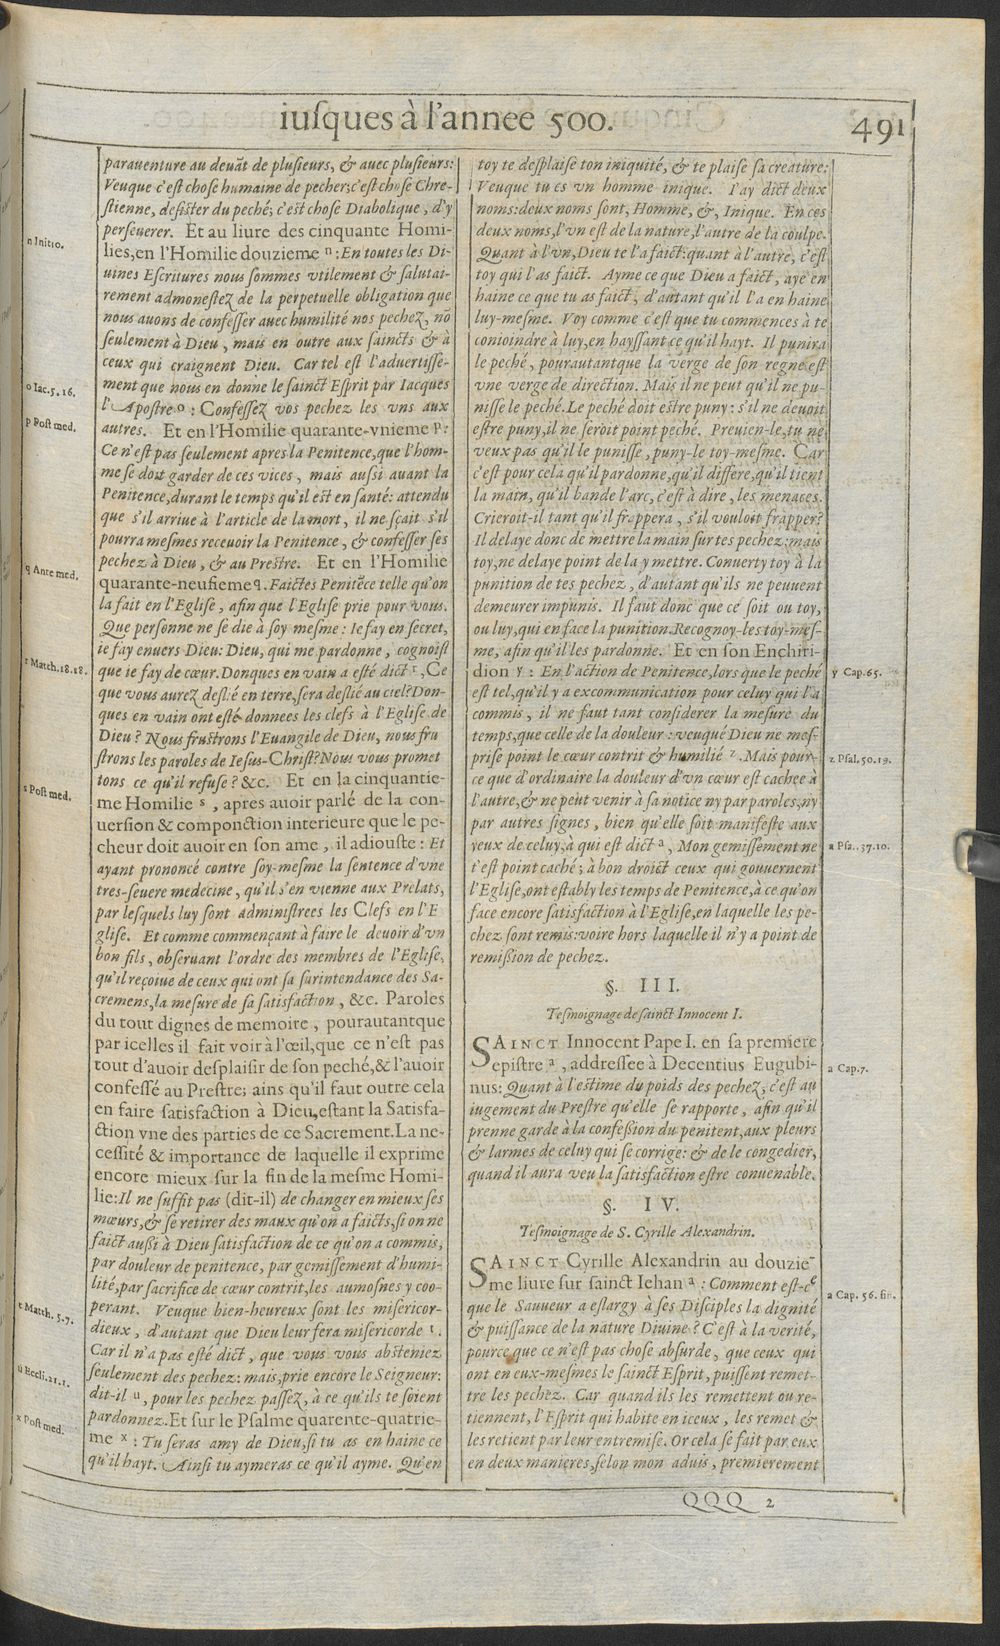 iusques à l'annee 500.
491
parauenture au deuāt de plusieurs, & auec plusieurs:
Veuque c'est chose humaine de pecher; c'est chose Chre-
stienne, desister du peché; c'est chose Diabolique, d'y
perseuerer. Et au liure des cinquante Homi-
lies, en l'Homilie douzieme n: En toutes les Di-
uines Escritures nous sommes vtilement & salutai-
rement admonestez de la perpetuelle obligation que
nous auons de confesser auec humilité nos pechez, nō
seulement à Dieu, mais en outre aux saincts & à
ceux qui craignent Dieu. Car tel est l'aduertisse-
ment que nous en donne le sainct Esprit par Iacques
l'Apostre o: Confessez vos pechez les vns aux
autres. Et en l'Homilie quarante-vnieme p:
Ce n'est pas seulement apres la Penitence, que l'hom-
me se doit garder de ces vices, mais aussi auant la
Penitence, durant le temps qu'il est en santé: attendu
que s'il arriue à l'article de la mort, il ne sçait s'il
pourra mesmes receuoir la Penitence, & confesser ses
pechez à Dieu, & au Prestre. Et en l'Homilie
quarante-neufieme q. Faictes Penitēce telle qu'on
la fait en l'Eglise, afin que l'Eglise prie pour vous.
Que personne ne se die à soy mesme: Ie fay en secret,
ie fay enuers Dieu: Dieu, qui me pardonne, cognoist
que ie fay de cœur. Donques en vain a esté dict r, Ce
que vous aurez deslié en terre, sera deslié au ciel? Don-
ques en vain ont esté donnees les clefs à l'Eglise de
Dieu? Nous frustrons l'Euangile de Dieu, nous fru
strons les paroles de Iesus-Christ? Nous vous promet
tons ce qu'il refuse? &c. Et en la cinquantie-
me Homilie s, apres auoir parlé de la con-
uersion & componction interieure que le pe-
cheur doit auoir en son ame, il adiouste: Et
ayant prononcé contre soy-mesme la sentence d'vne
tres-seuere medecine, qu'il s'en vienne aux Prelats,
par lesquels luy sont administrees les Clefs en l'E
glise. Et comme commençant à faire le deuoir d'vn
bon fils, obseruant l'ordre des membres de l'Eglise,
qu'il reçoiue de ceux qui ont sa surintendance des Sa-
cremens, la mesure de sa satisfaction, &c. Paroles
du tout dignes de memoire, pourautantque
par icelles il fait voir à l'œil, que ce n'est pas
tout d'auoir desplaisir de son peché, & l'auoir
confessé au Prestre; ains qu'il faut outre cela
en faire satisfaction à Dieu, estant la Satisfa-
ction vne des parties de ce Sacrement. La ne-
cessité & importance de laquelle il exprime
encore mieux sur la fin de la mesme Homi-
lie: Il ne suffit pas (dit-il) de changer en mieux ses
mœurs, & se retirer des maux qu'on a faicts, si on ne
faict aussi à Dieu satisfaction de ce qu'on a commis,
par douleur de penitence, par gemissement d'humi-
lité, par sacrifice de cœur contrit, les aumosnes y coo-
perant. Veuque bien-heureux sont les misericor-
dieux, d'autant que Dieu leur fera misericorde t.
Car il n'a pas esté dict, que vous vous absteniez
seulement des pechez: mais, prie encore le Seigneur:
dit-il u, pour les pechez passez, à ce qu'ils te soient
pardonnez. Et sur le Psalme quarente-quatrie-
me x: Tu seras amy de Dieu, si tu as en haine ce
qu'il hayt. Ainsi tu aymeras ce qu'il ayme. Qu'en
n Initio.
o Iac. 5. 16.
p Post med.
q Ante med.
r Matth. 18. 18.
s Post med.
t Matth. 5. 7.
u Eccli. 21. 1.
x Post med.
toy te desplaise ton iniquité, & te plaise sa creature:
Veuque tu es vn homme inique. I'ay dict deux
noms: deux noms sont, Homme, &, Inique. En ces
deux noms, l'vn est de la nature, l'autre de la coulpe.
Quant à l'vn, Dieu te l'a faict: quant à l'autre, c'est
toy qui l'as faict. Ayme ce que Dieu a faict, aye en
haine ce que tu as faict, d'autant qu'il l'a en haine
luy-mesme. Voy comme c'est que tu commences à te
conioindre à luy, en hayssant ce qu'il hayt. Il punira
le peché, pourautantque la verge de son regne est
vne verge de direction. Mais il ne peut qu'il ne pu-
nisse le peché. Le peché doit estre puny: s'il ne deuoit
estre puny, il ne seroit point peché. Preuien-le, tu ne
veux pas qu'il le punisse, puny-le toy-mesme. Car
c'est pour cela qu'il pardonne, qu'il differe, qu'il tient
la main, qu'il bande l'arc, c'est à dire, les menaces.
Crieroit-il tant qu'il frappera, s'il vouloit frapper?
Il delaye donc de mettre la main sur tes pechez: mais
toy, ne delaye point de la y mettre. Conuerty toy à la
punition de tes pechez, d'autant qu'ils ne peuuent
demeurer impunis. Il faut donc que ce soit ou toy,
ou luy, qui en face la punition. Recognoy-les toy-mes-
me, afin qu'il les pardonne. Et en son Enchiri-
dion y: En l'action de Penitence, lors que le peché
est tel, qu'il y a excommunication pour celuy qui l'a
commis, il ne faut tant considerer la mesure du
temps, que celle de la douleur: veuque Dieu ne mes-
prise point le cœur contrit & humilié z. Mais pour-
ce que d'ordinaire la douleur d'vn cœur est cachee à
l'autre, & ne peut venir à sa notice ny par paroles, ny
par autres signes, bien qu'elle soit manifeste aux
yeux de celuy, à qui est dict a, Mon gemissement ne
t'est point caché; à bon droict ceux qui gouuernent
l'Eglise, ont estably les temps de Penitence, à ce qu'on
face encore satisfaction à l'Eglise, en laquelle les pe-
chez sont remis: voire hors laquelle il n'y a point de
remission de pechez.
§. III.
Tesmoignage de sainct Innocent I.
SAINCT Innocent Pape I. en sa premiere
epistre a, addressee à Decentius Eugubi-
nus: Quant à l'estime du poids des pechez, c'est au
iugement du Prestre qu'elle se rapporte, afin qu'il
prenne garde à la confession du penitent, aux pleurs
& larmes de celuy qui se corrige: & de le congedier,
quand il aura veu la satisfaction estre conuenable.
§. IV.
Tesmoignage de S. Cyrille Alexandrin.
SAINCT Cyrille Alexandrin au douzie-
me liure sur sainct Iehan a: Comment est-ce
que le Sauueur a eslargy à ses Disciples la dignité
& puissance de la nature Diuine? C'est à la verité,
pource que ce n'est pas chose absurde, que ceux qui
ont en eux-mesmes le sainct Esprit, puissent remet-
tre les pechez. Car quand ils les remettent ou re-
tiennent, l'Esprit qui habite en iceux, les remet &
les retient par leur entremise. Or cela se fait par eux
en deux manieres, selon mon aduis, premierement
y Cap. 65.
z Psal. 50. 19.
a Psa. 37. 10.
a Cap. 7.
a Cap. 56. fin.
QQQ 2